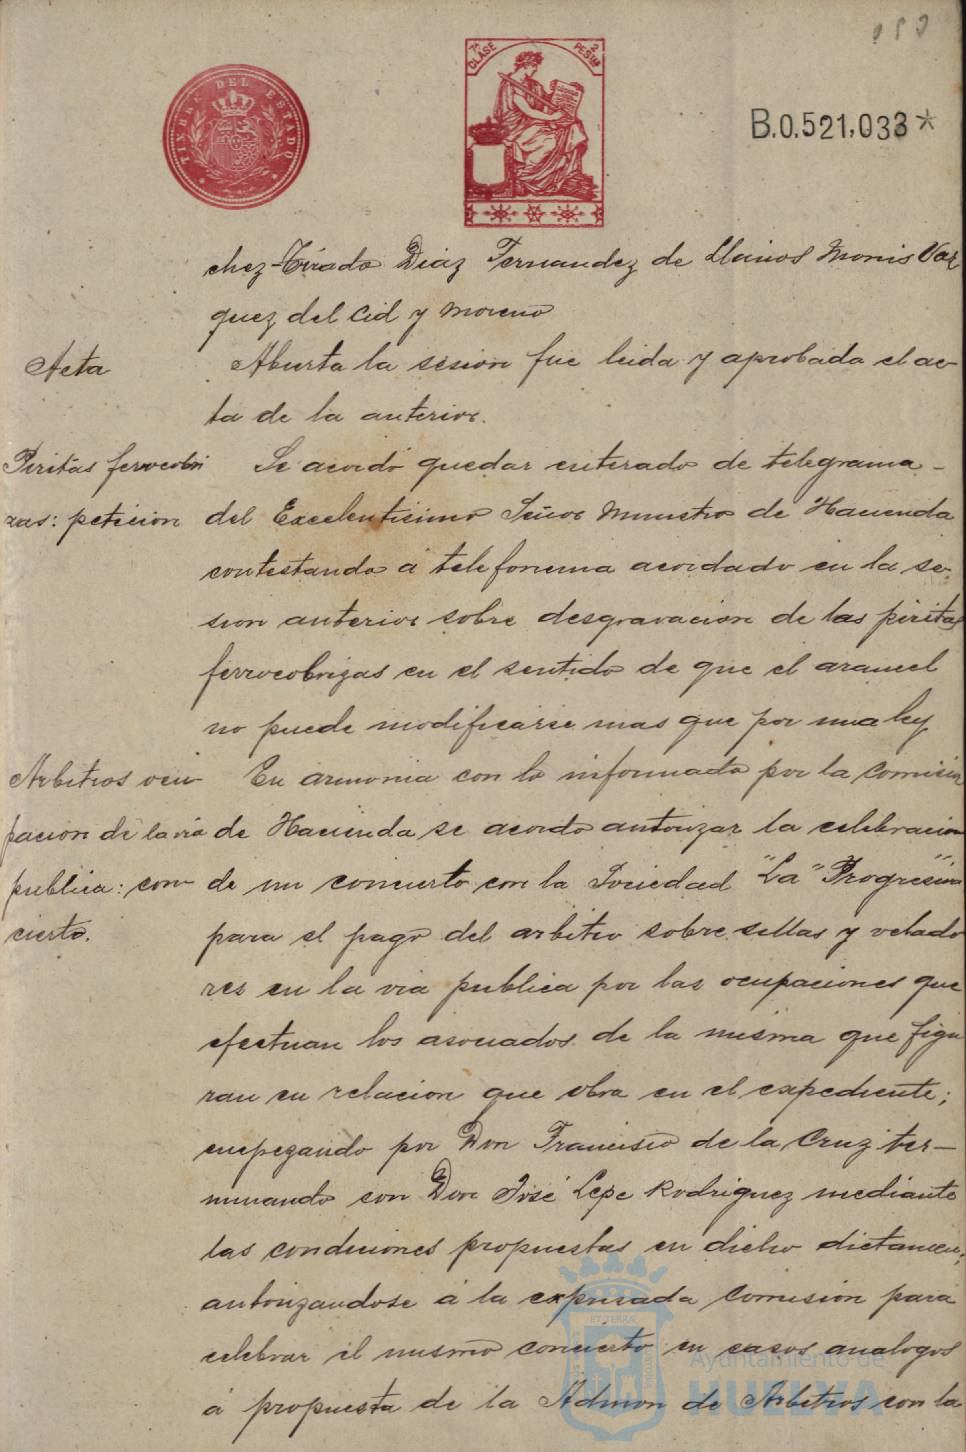 TIMBRE DEL ESTADO
7ª CLASE 2 PESETAS
B.0.521,033*
chez-Tirado Diaz Fernandez de Llanos Monis Vaz
quez del Cid y Moreno
Acta
Abierta la sesion fue leida y aprobada el ac-
ta de la anterior.
Piritas ferrocobri
zas: peticion
Se acordó quedar enterado de telegrama-
del Excelentisimo Señor Ministro de Hacienda
contestando á telefonema acordado en la se-
sion anterior sobre desgravacion de las piritas
ferrocobrizas en el sentido de que el arancel
no puede modificarse mas que por una ley
Arbitros ocu-
pacion de la via
publica: con-
cierto.
En armonia con lo informado por la Comision
de Hacienda se acordo autorizar la celebracion
de un concierto con la Sociedad "La" "Progresiva"
para el pago del arbitrio sobre sillas y velado
res en la via publica por las ocupaciones que
efectuan los asociados de la misma que figu
ran en relacion que obra en el expediente;
empezando por Don Francisco de la Cruz ter-
minando con Don José Lepe Rodriguez mediante
las condiciones propuestas en dicho dictamen;
autorizandose á la expresada Comision para
celebrar el mismo concierto en casos analogos
á propuesta de la Admon de Arbitros con la
Ayuntamiento de
HUELVA